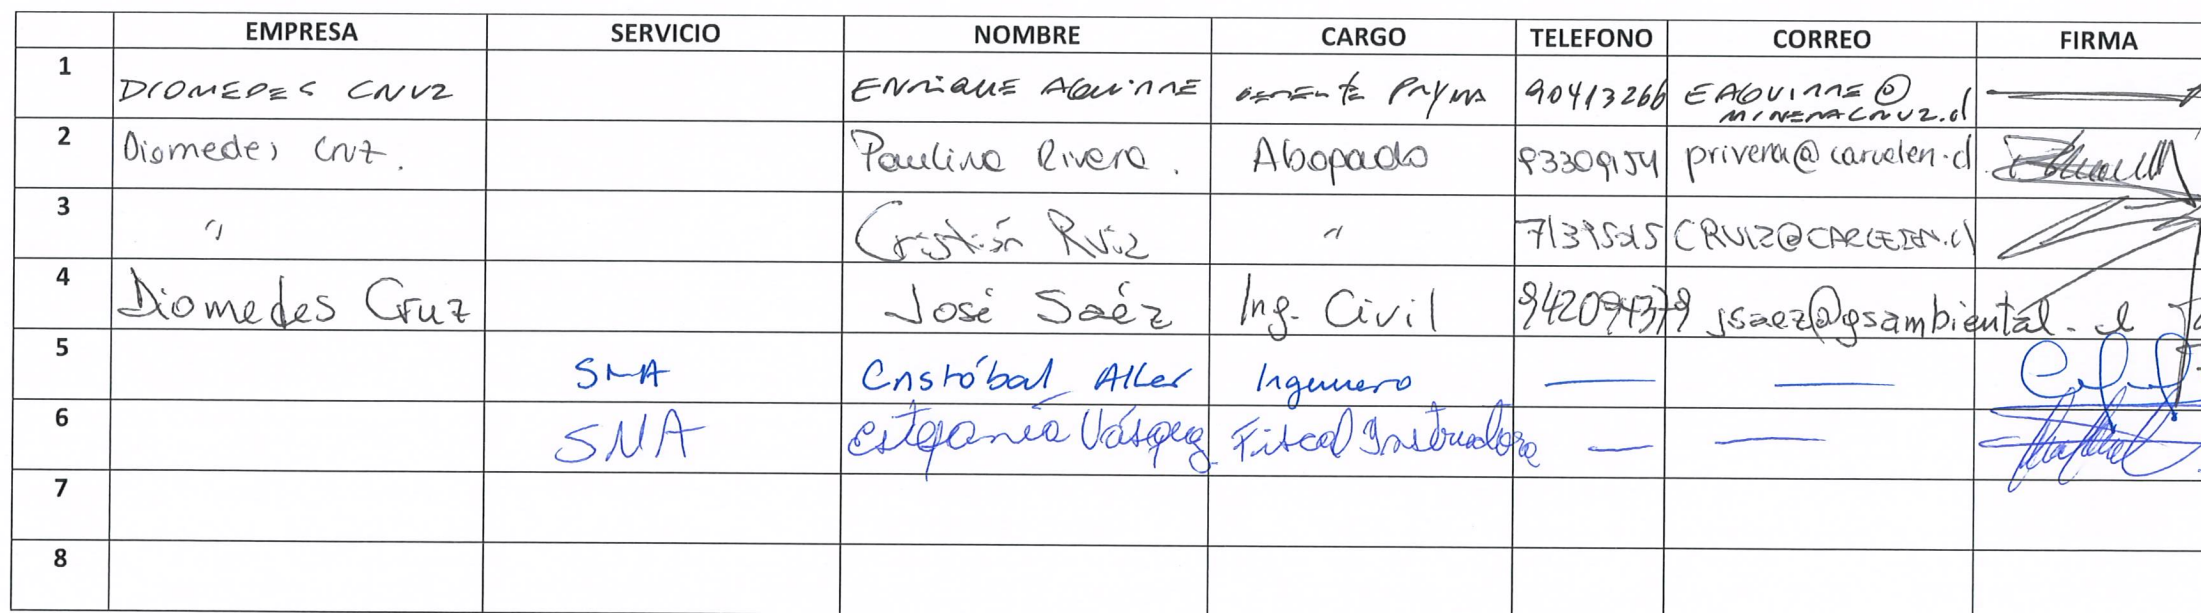 EMPRESA SERVICIO NOMBRE CARGO TELEFONO CORREO FIRMA
1 DIOMEDES CRUZ ENRIQUE AGUIRRE GERENTE PRYMA 90413266 EAGUIRRE@
MINERACRUZ.cl
2 Diomedes Cruz. Paulina Rivera. Abogado 93309154 privera@carcelen.cl
3 " Cristián Ruiz " CRUIZ@CARCELEN.cl
4 Diomedes Cruz José Saéz Ing. Civil 942094379 jsaez@gsambiental.cl
5 SMA Cristóbal Aller Ingeniero — —
6 SMA Estefanía Vásquez Fiscal Instructora — —
7
8